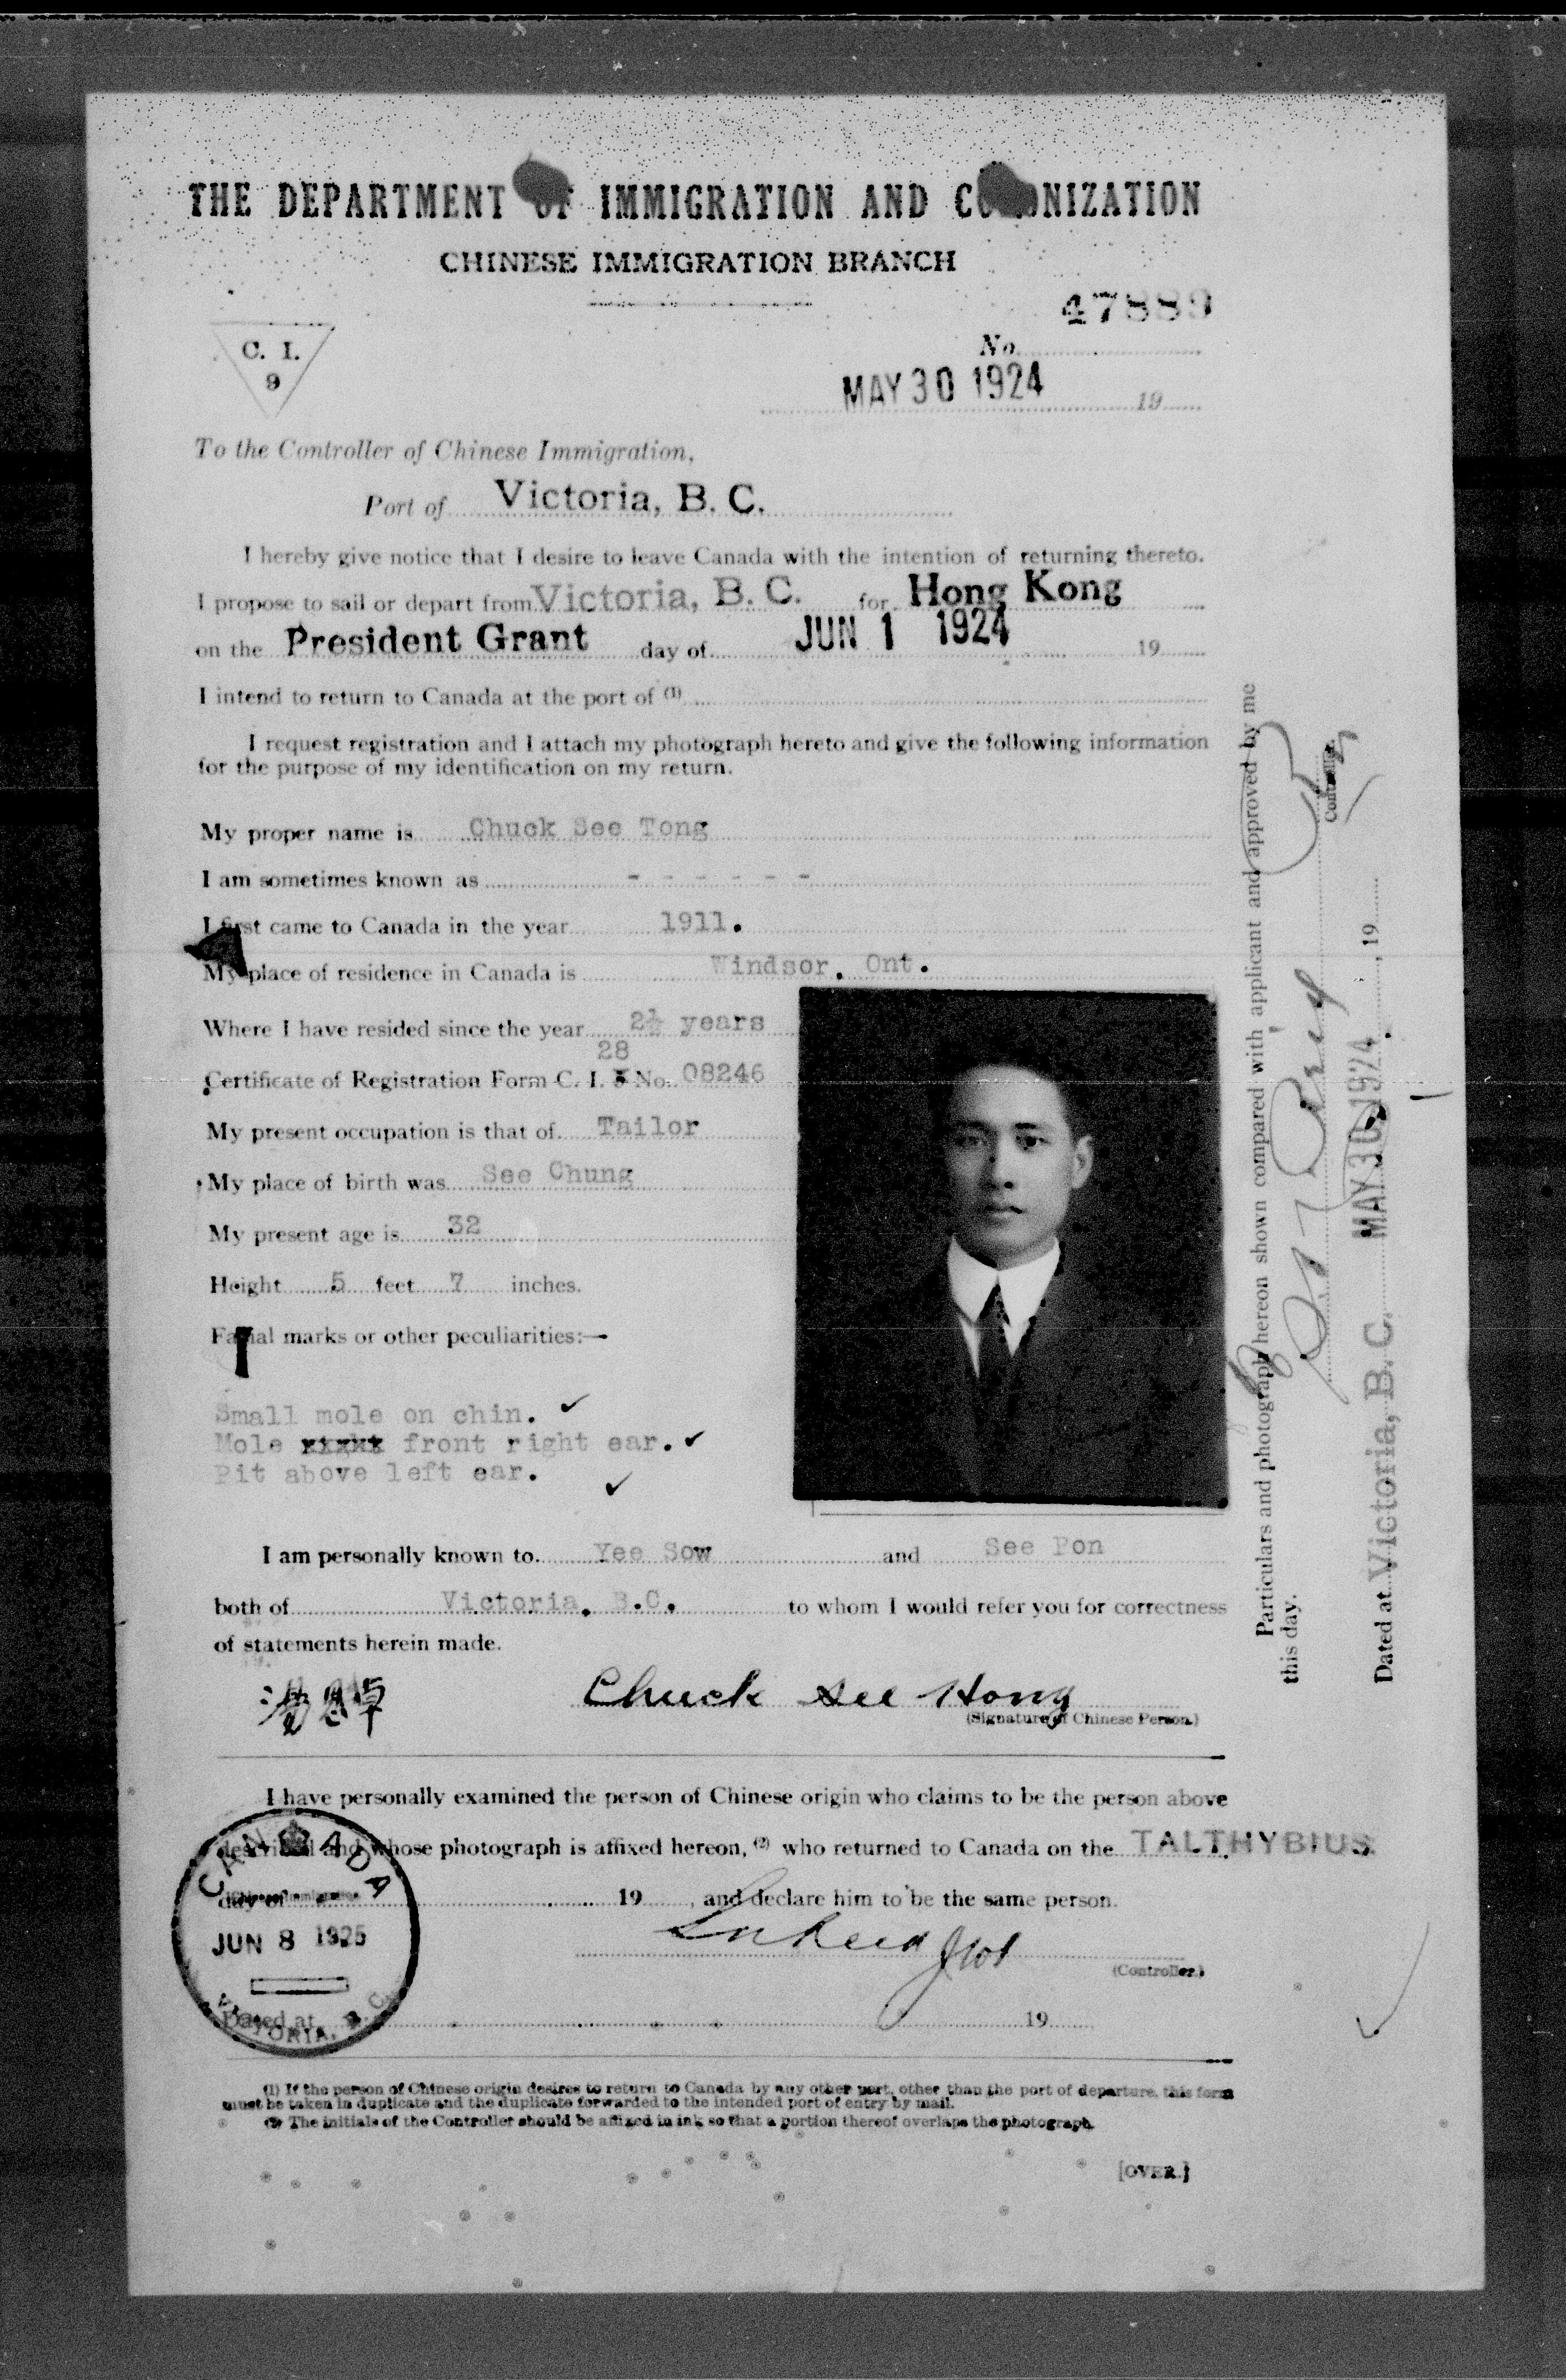 THE DEPARTMENT OF IMMIGRATION AND COLONIZATION
CHINESE IMMIGRATION BRANCH
47889
C. I.
9
No.
MAY 30 1924 19
To the Controller of Chinese Immigration,
Port of Victoria, B. C.
I hereby give notice that I desire to leave Canada with the intention of returning thereto.
I propose to sail or depart from Victoria, B. C. for Hong Kong
on the President Grant day of JUN 1 1924 19
I intend to return to Canada at the port of (1)
I request registration and I attach my photograph hereto and give the following information
for the purpose of my identification on my return.
My proper name is Chuck See Tong
I am sometimes known as - - - - - -
I first came to Canada in the year 1911.
My place of residence in Canada is Windsor, Ont.
Where I have resided since the year 2½ years
28
Certificate of Registration Form C. I. 5 No. 08246
My present occupation is that of Tailor
My place of birth was See Chung
My present age is 32
Height 5 feet 7 inches.
Facial marks or other peculiarities:—
Small mole on chin. ✓
Mole front right ear. ✓
Pit above left ear. ✓
I am personally known to Yee Sow and See Pon
both of Victoria, B.C. to whom I would refer you for correctness
of statements herein made.
Chuck See Hong
(Signature of Chinese Person.)
I have personally examined the person of Chinese origin who claims to be the person above
described and whose photograph is affixed hereon, (2) who returned to Canada on the TALTHYBIUS
day of 19 , and declare him to be the same person.
(Controller.)
Dated at 19
CANADA
JUN 8 1925
VICTORIA, B. C.
(1) If the person of Chinese origin desires to return to Canada by any other port, other than the port of departure, this form
must be taken in duplicate and the duplicate forwarded to the intended port of entry by mail.
(2) The initials of the Controller should be affixed in ink so that a portion thereof overlaps the photograph.
[OVER.]
Particulars and photograph hereon shown compared with applicant and approved by me
this day.
Controller
Dated at Victoria, B. C. MAY 30 1924 , 19